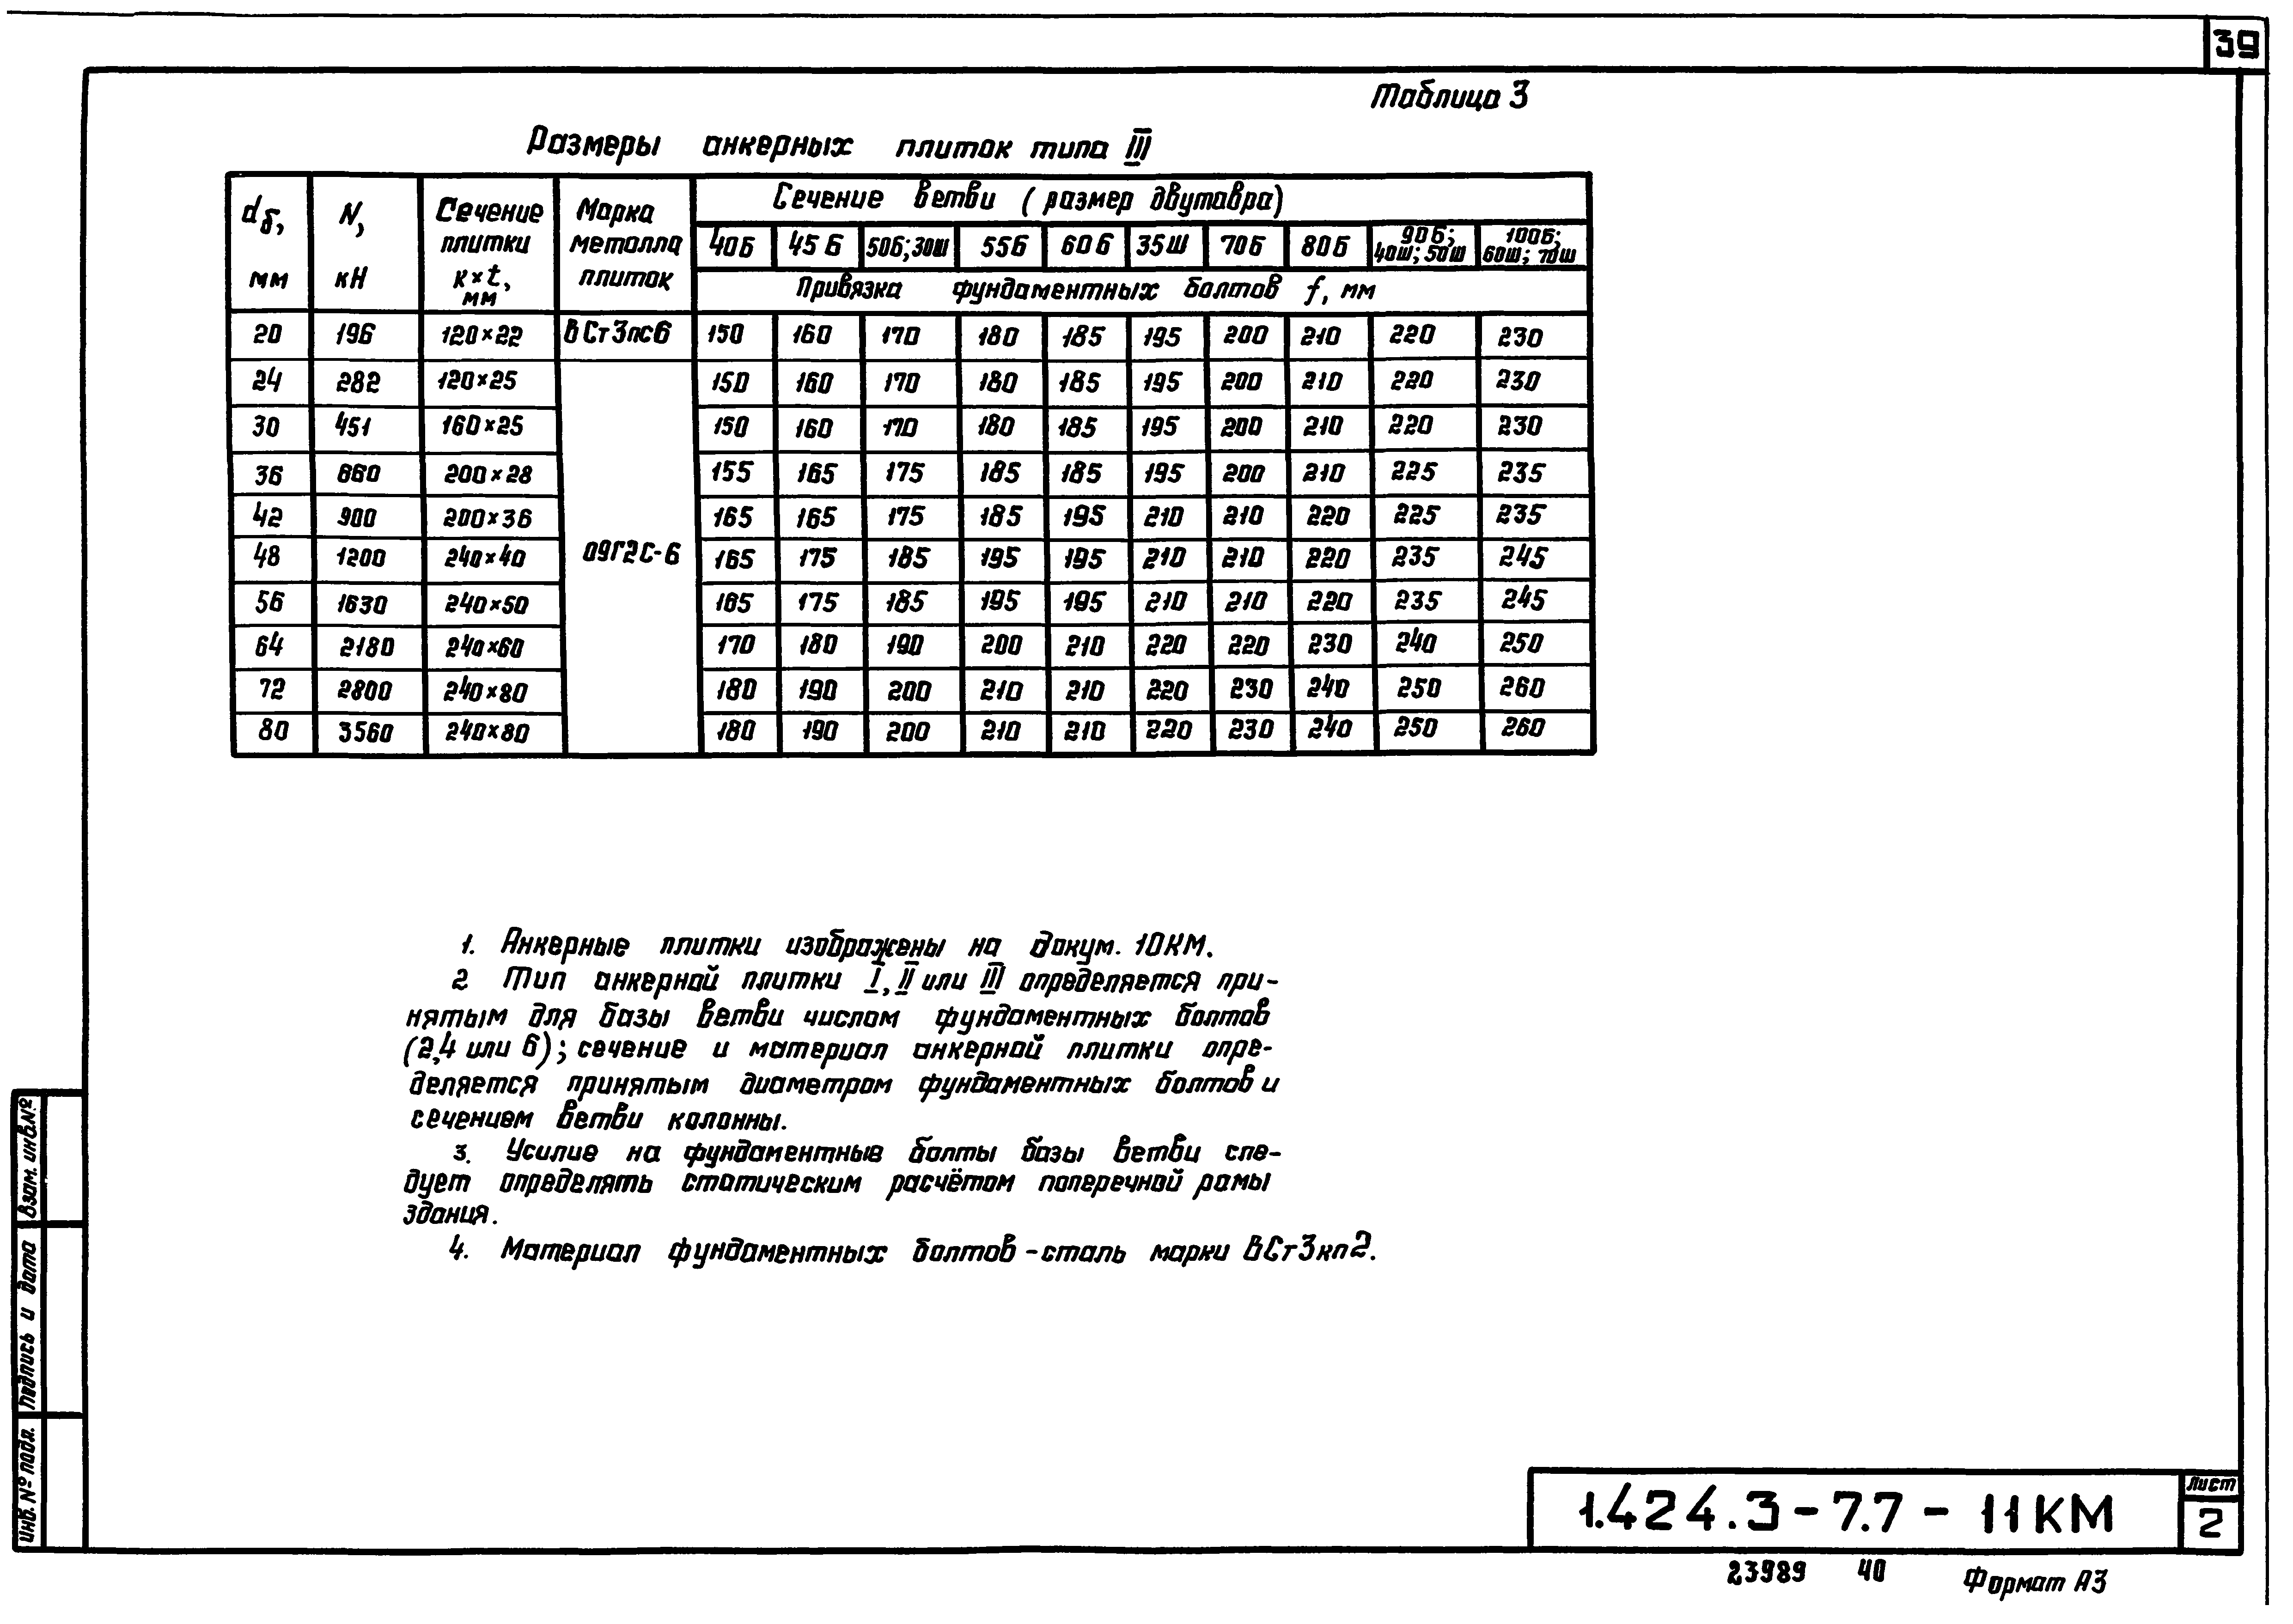 39
Таблица 3
Размеры анкерных плиток типа III
dб, мм | N, кН | Сечение плитки К×t, мм | Марка металла плиток | Сечение ветви (размер двутавра)
40Б | 45Б | 50Б; 30Ш | 55Б | 60Б | 35Ш | 70Б | 80Б | 90Б; 40Ш; 50Ш | 100Б; 60Ш; 70Ш
Привязка фундаментных болтов f, мм
20 | 196 | 120×22 | ВСт3пс6 | 150 | 160 | 170 | 180 | 185 | 195 | 200 | 210 | 220 | 230
24 | 282 | 120×25 | 09Г2С-6 | 150 | 160 | 170 | 180 | 185 | 195 | 200 | 210 | 220 | 230
30 | 451 | 160×25 | 150 | 160 | 170 | 180 | 185 | 195 | 200 | 210 | 220 | 230
36 | 660 | 200×28 | 155 | 165 | 175 | 185 | 185 | 195 | 200 | 210 | 225 | 235
42 | 900 | 200×36 | 165 | 165 | 175 | 185 | 195 | 210 | 210 | 220 | 225 | 235
48 | 1200 | 240×40 | 165 | 175 | 185 | 195 | 195 | 210 | 210 | 220 | 235 | 245
56 | 1630 | 240×50 | 165 | 175 | 185 | 195 | 195 | 210 | 210 | 220 | 235 | 245
64 | 2180 | 240×60 | 170 | 180 | 190 | 200 | 210 | 220 | 220 | 230 | 240 | 250
72 | 2800 | 240×80 | 180 | 190 | 200 | 210 | 210 | 220 | 230 | 240 | 250 | 260
80 | 3560 | 240×80 | 180 | 190 | 200 | 210 | 210 | 220 | 230 | 240 | 250 | 260
1. Анкерные плитки изображены на докум. 10КМ.
2 Тип анкерной плитки I, II или III определяется при-
нятым для базы ветви числом фундаментных болтов
(2,4 или 6); сечение и материал анкерной плитки опре-
деляется принятым диаметром фундаментных болтов и
сечением ветви колонны.
3. Усилие на фундаментные болты базы ветви сле-
дует определять статическим расчётом поперечной рамы
здания.
4. Материал фундаментных болтов - сталь марки ВСт3кп2.
Взам. инв.№
Подпись и дата
Инв. № подл.
1.424.3-7.7-11КМ
Лист
2
23989 40 Формат А3